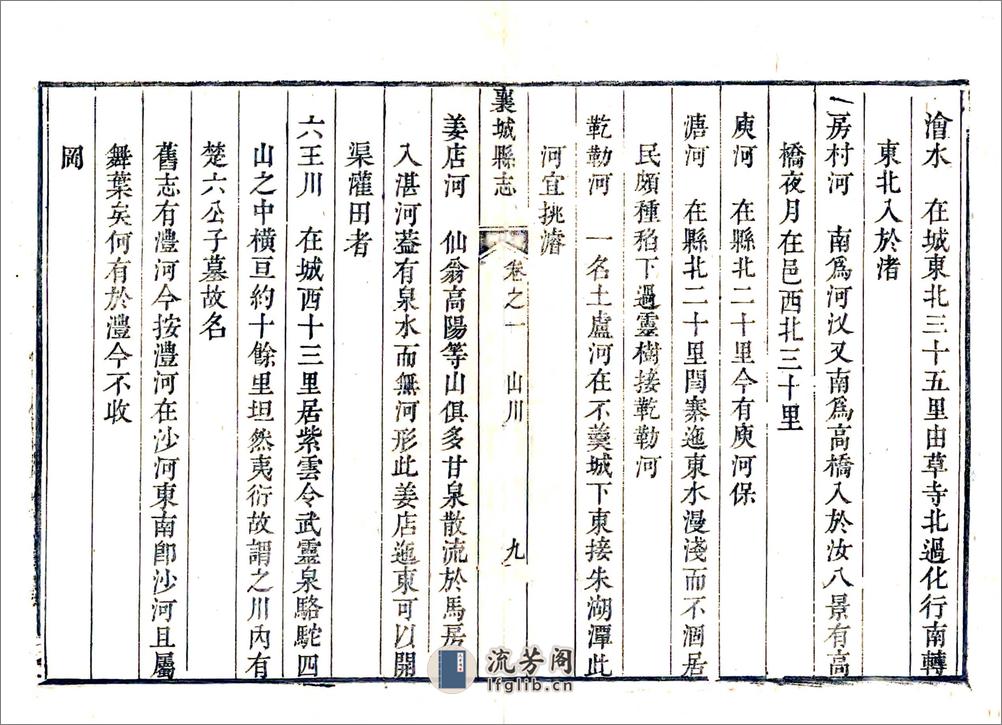 澮水　在城東北三十五里由草寺北過化行南轉
東北入於渚
二房村河　南爲河汊又南爲高橋入於汝八景有高
橋夜月在邑西北三十里
庾河　在縣北二十里今有庾河保
溏河　在縣北二十里閆寨迤東水漫淺而不涸居
民頗種稻下過靈樹接乾勒河
乾勒河　一名土盧河在不羹城下東接朱湖潭此
河宜挑濬
襄城縣志　卷之一　山川　九
姜店河　仙翁高陽等山俱多甘泉散流於馬房
入湛河葢有泉水而無河形此姜店迤東可以開
渠灌田者
六王川　在城西十三里居紫雲令武靈泉駱駝四
山之中橫亘約十餘里坦然夷衍故謂之川內有
楚六公子墓故名
舊志有澧河今按澧河在沙河東南卽沙河且屬
舞葉矣何有於澧今不收
岡
流芳阁
lfglib.cn